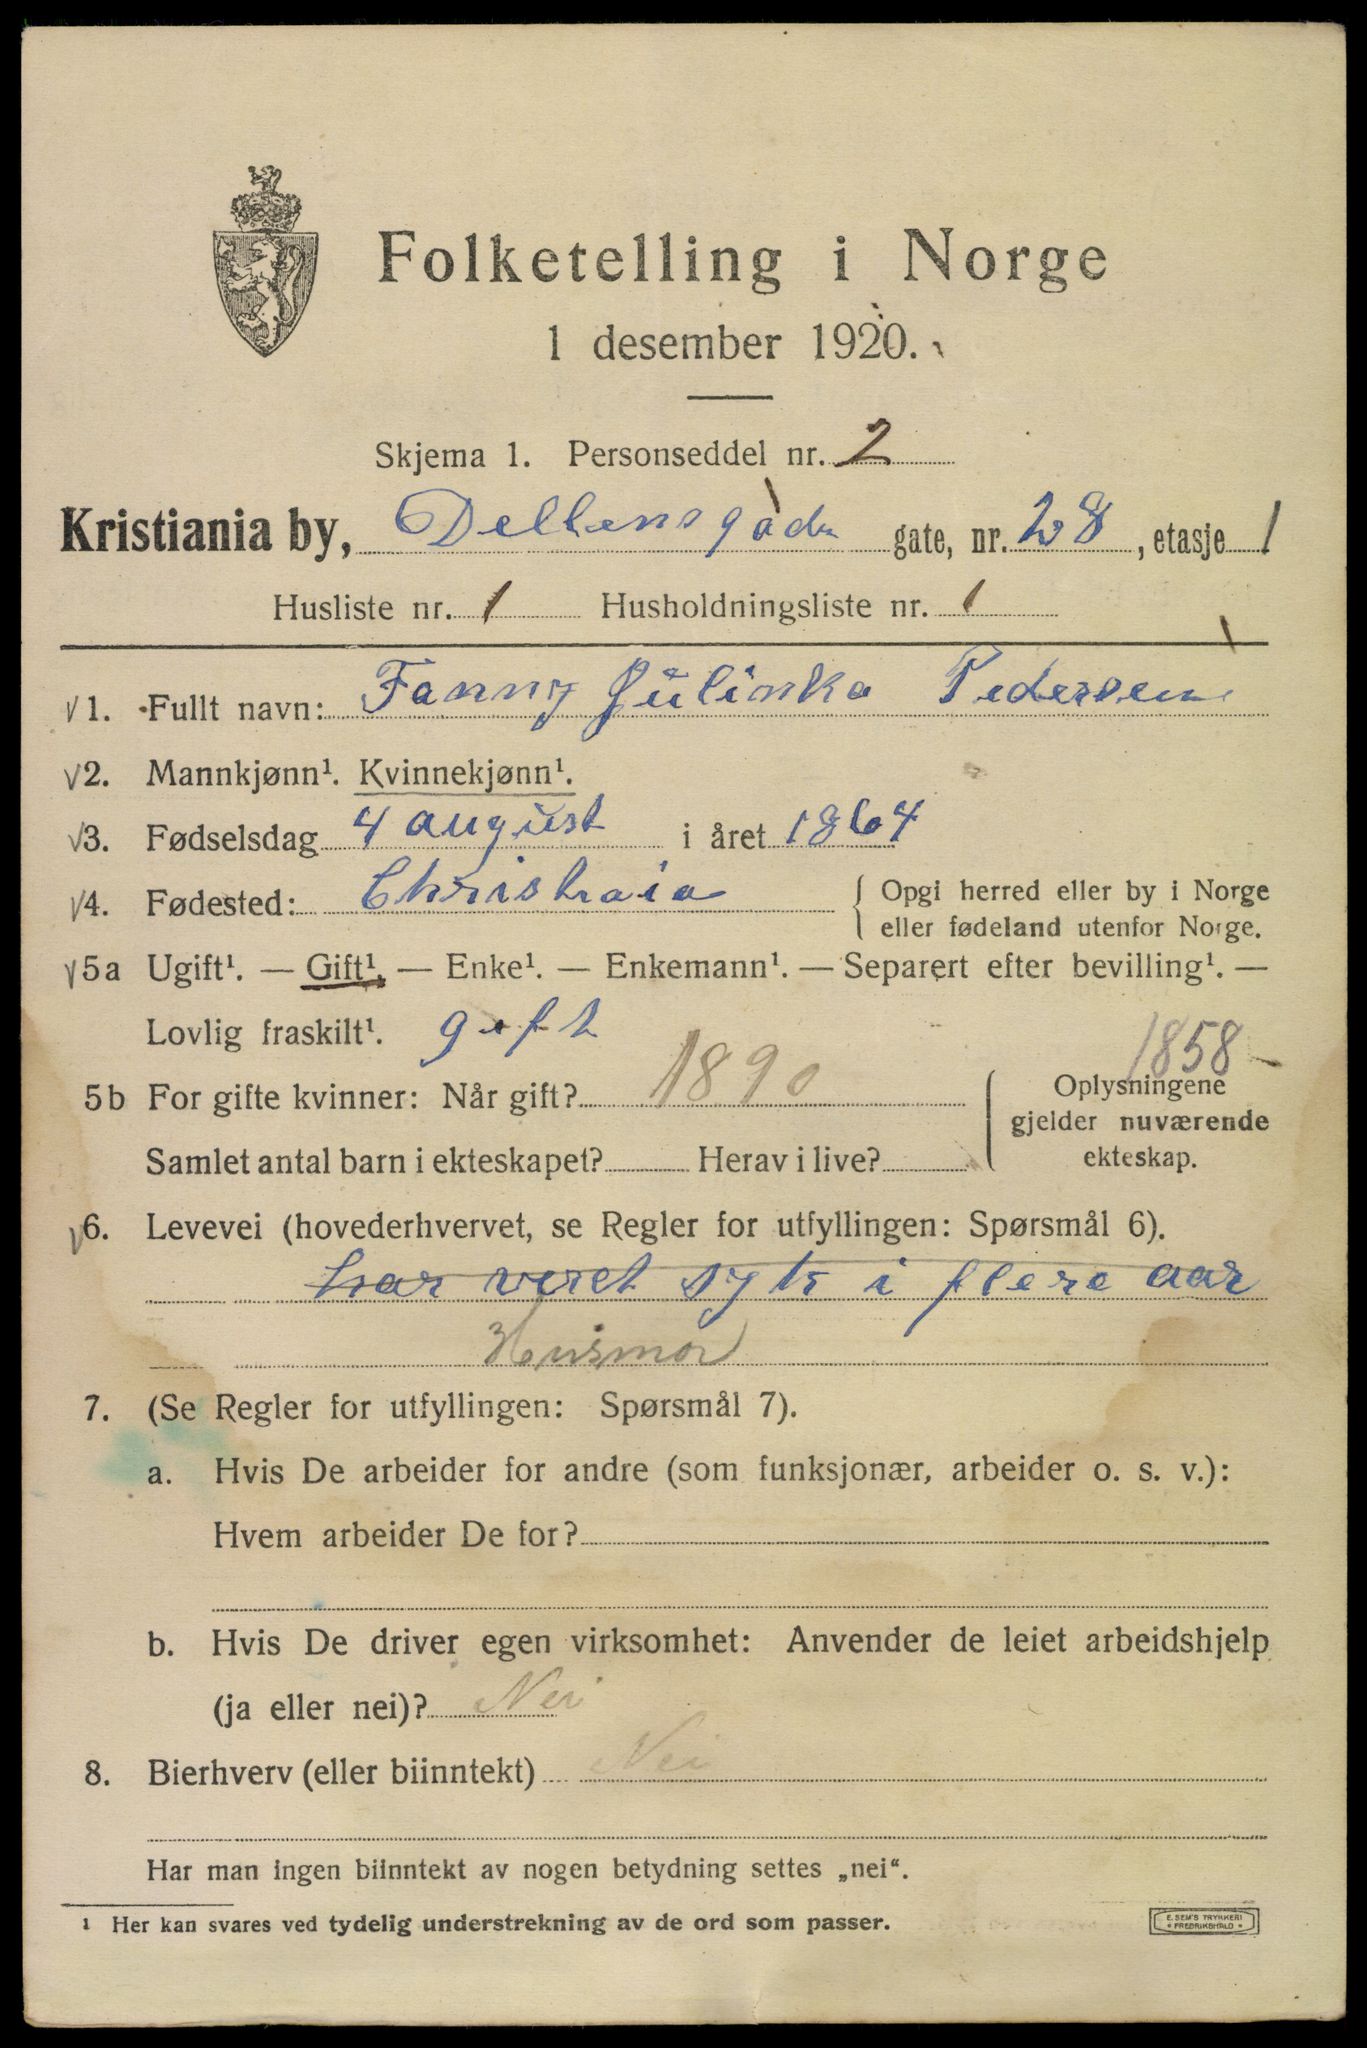 Folketelling i Norge
1 desember 1920.
Skjema 1. Personseddel nr. 2
Kristiania by, Dellensgade gate, nr. 28, etasje 1
Husliste nr. 1 Husholdningsliste nr. 1
1. Fullt navn: Fanny Julinka Pedersen
2. Mannkjønn¹. Kvinnekjønn¹.
3. Fødselsdag 4 august i året 1864
4. Fødested: Christiania { Opgi herred eller by i Norge
eller fødeland utenfor Norge.
5a Ugift¹. — Gift¹. — Enke¹. — Enkemann¹. — Separert efter bevilling¹. —
Lovlig fraskilt¹. gift
1858
5b For gifte kvinner: Når gift? 1890 { Oplysningene
gjelder nuværende
Samlet antal barn i ekteskapet? Herav i live? ekteskap.
6. Levevei (hovederhvervet, se Regler for utfyllingen: Spørsmål 6).
har veret syk i flere aar
Husmor
7. (Se Regler for utfyllingen: Spørsmål 7).
a. Hvis De arbeider for andre (som funksjonær, arbeider o. s. v.):
Hvem arbeider De for?
b. Hvis De driver egen virksomhet: Anvender de leiet arbeidshjelp
(ja eller nei)? Nei
8. Bierhverv (eller biinntekt) Nei
Har man ingen biinntekt av nogen betydning settes „nei“.
1 Her kan svares ved tydelig understrekning av de ord som passer.
E. SEM'S TRYKKERI
FREDRIKSHALD